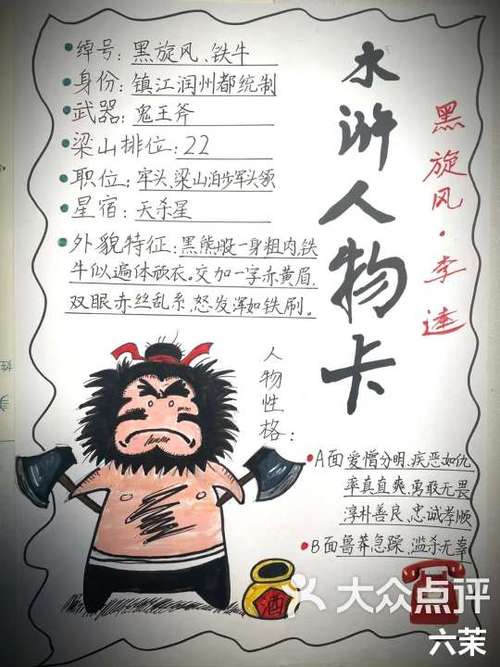 水浒人物卡
黑旋风·李逵
绰号：黑旋风、铁牛
身份：镇江润州都统制
武器：鬼王斧
梁山排位：22
职位：牢头、梁山泊步军头领
星宿：天杀星
外貌特征：黑熊般一身粗肉，铁
牛似遍体顽衣。交加一字赤黄眉，
双眼赤丝乱系，怒发浑如铁刷。
人物性格：
A面爱憎分明、疾恶如仇
率真直爽、勇敢无畏
淳朴善良、忠诚孝顺
B面鲁莽急躁、滥杀无辜
酒
大众点评
六茉